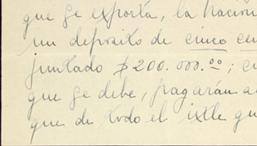 que se exporta, la nación
un depósito de cinco cen
juntado $200.000.00; c
que se debe, pagarán a
que de todo el ixtle qu